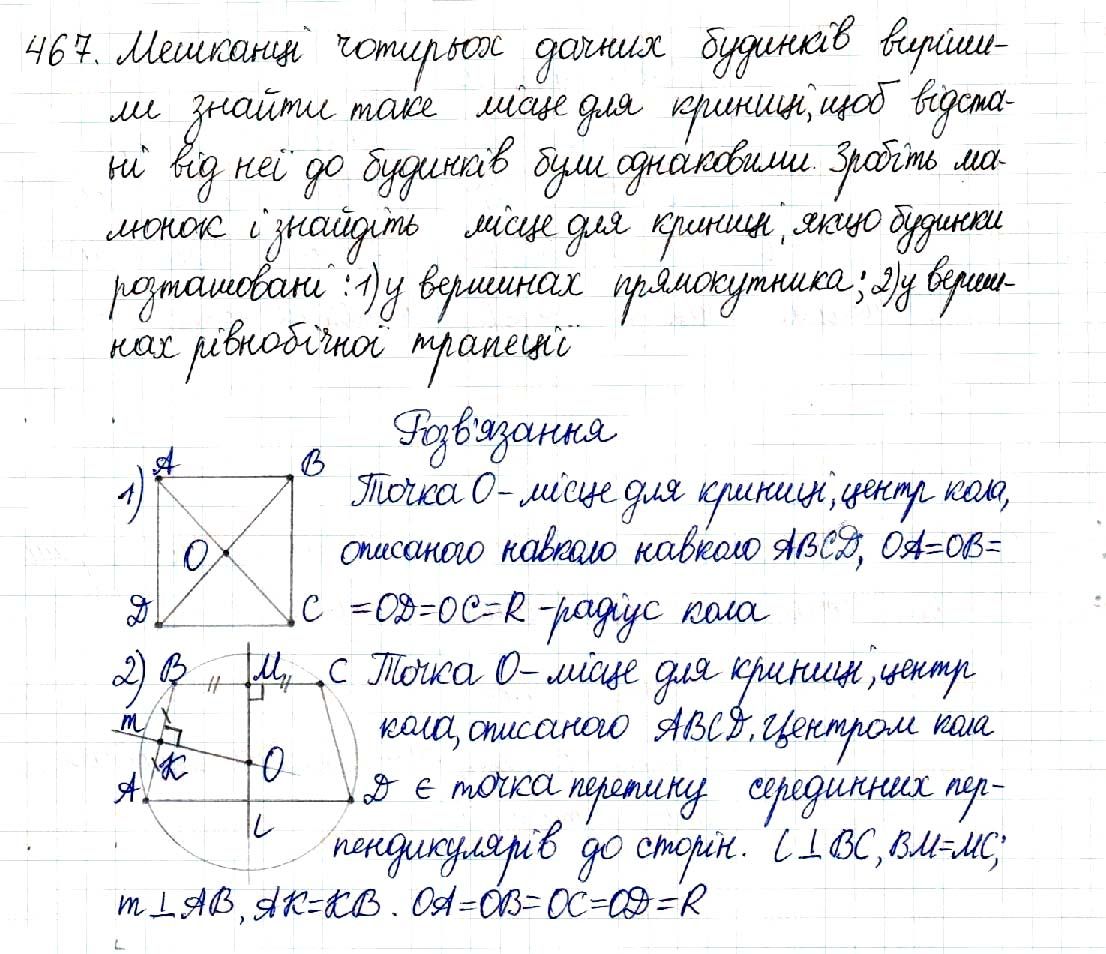 467. Мешканці чотирьох дачних будинків виріши-
ли знайти таке місце для криниці, щоб відста-
ні від неї до будинків були однаковими. Зробіть ма-
люнок і знайдіть місце для криниці, якщо будинки
розташовані: 1) у вершинах прямокутника; 2) у верши-
нах рівнобічної трапеції
Розв'язання
1) A B
O
D C
Точка O - місце для криниці, центр кола,
описаного навколо навколо ABCD, OA=OB=
=OD=OC=R - радіус кола
2) B M C
m
K O
A D
L
Точка O - місце для криниці, центр
кола, описаного ABCD. Центром кола
є точка перетину серединних пер-
пендикулярів до сторін. L⊥BC, BM=MC;
m⊥AB, AK=KB. OA=OB=OC=OD=R